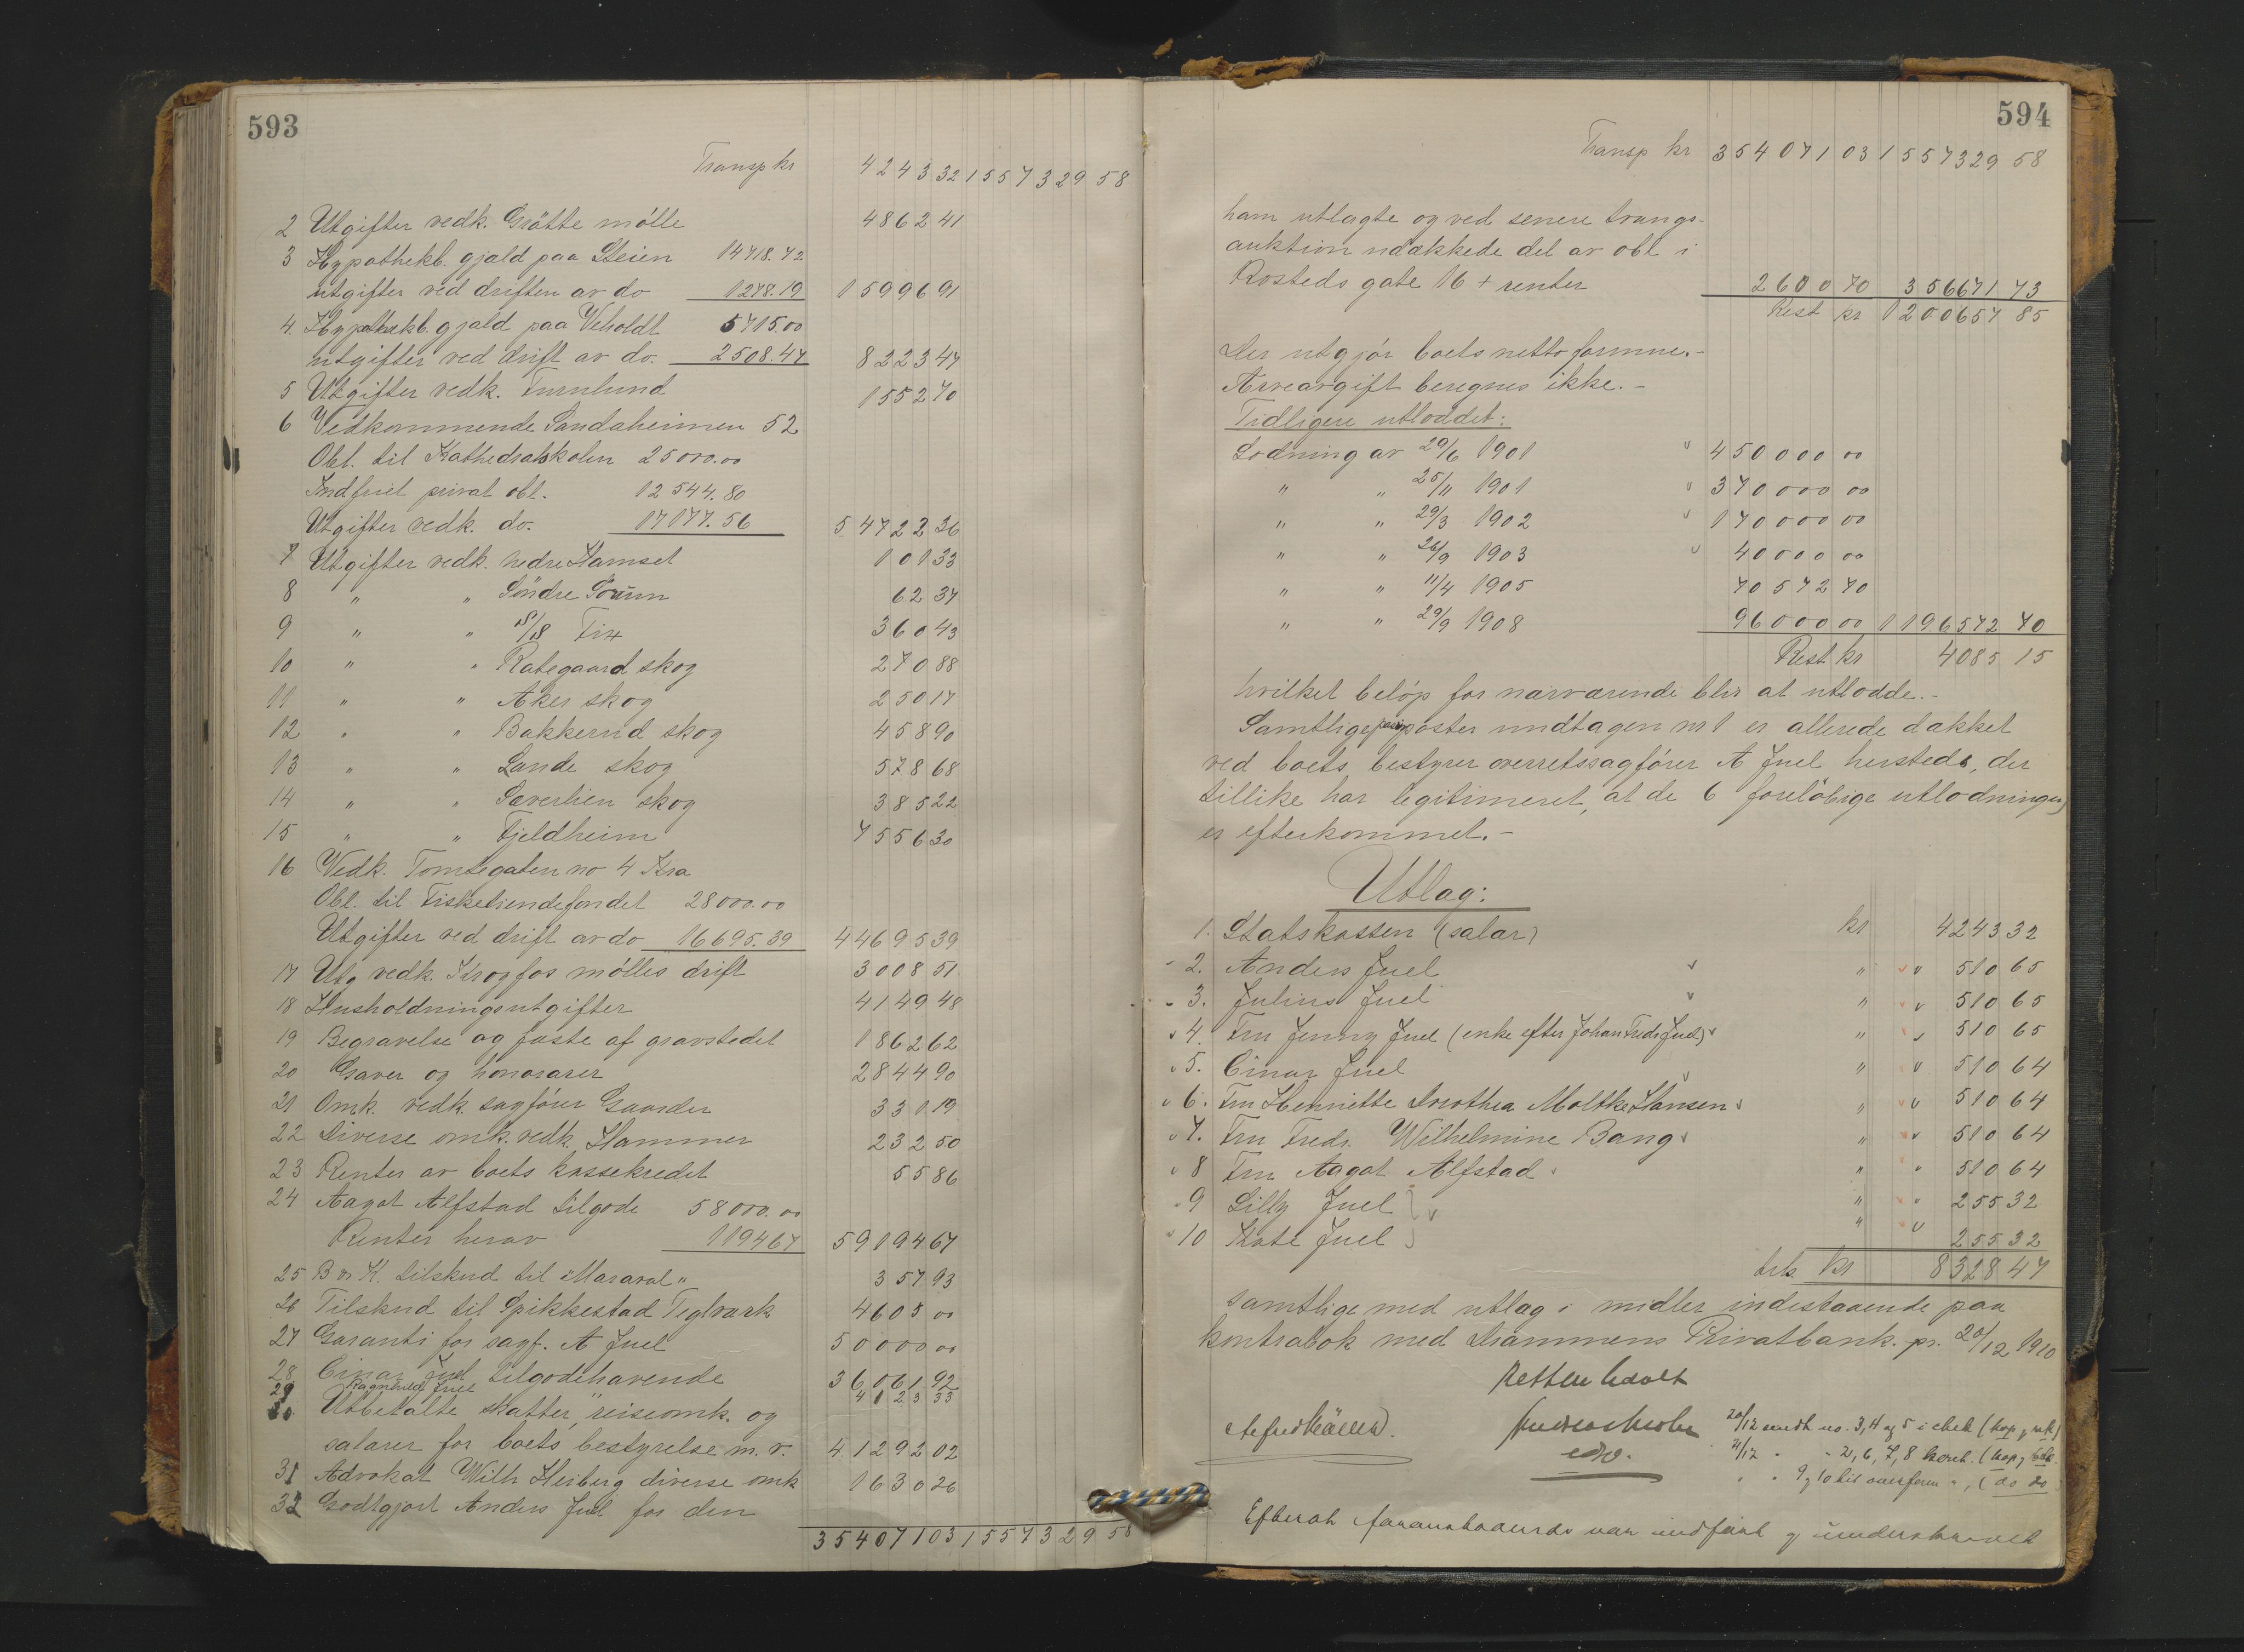 593
Transp kr 4243 32 1557329 58
2 Utgifter vedk. Grötte mölle 4862 41
3 Hypothekb. gjæld paa Steien 14718.72
utgifter ved driften av do 1278.19 15996 91
4. Hypothekb. gjæld paa Veholdt 5715.00
utgifter ved drift av do. 2508.47 8223 47
5 Utgifter vedk. Furulund 1552 70
6 Vedkommende Sandaheimen 52
Obl. til Kathedralskolen 25000.00
Indfriet privat obl. 12544.80
Utgifter vedk. do. 17177.56 54722 36
7 Utgifter vedk. nedre Hamset 101 33
8 " " Söndre Sörum 62 37
9 " " S/S Fix 360 43
10 " " Rategaard skog 270 88
11 " " Aker skog 250 17
12 " " Bakkerud skog 458 90
13 " " Lande skog 578 68
14 " " Sæverlien skog 385 22
15 " " Fjeldheim 7556 30
16 Vedk. Tomtegaten no 4 Kra
Obl. til Fisketiendefondet 28000.00
Utgifter ved drift av do 16695.39 44695 39
17 Utg vedk. Krogfos mölles drift 3008 51
18 Husholdningsutgifter 4149 48
19 Begravelse og fæste af gravstedet 1862 62
20 Gaver og honorarer 2844 90
21 Omk. vedk. sagförer Gaarder 330 19
22 Diverse omk. vedk. Hammer 232 50
23 Renter av boets kassekredit 55 86
24 Aagot Alfstad tilgode 58000.00
Renter herav 1194 67 59194 67
25 B & K. tilskud til "Mararal" 357 93
26 Tilskud til Spikkestad Teglværk 4605 00
27 Garanti for sagf. A Juel 50000 00
28 Einar Juel tilgodehavende 36061 92
29 Ragnhild Juel " 4123 33
30 Utbetalte skatter, reiseomk. og
salærer for boets bestyrelse m. v. 41292 02
31 Advokat Wilh Heiberg diverse omk 1630 26
32 Godtgjort Anders Juel for den
354071 03 1557329 58
594
Transp kr 354071 03 1557329 58
ham utlagte og ved senere tvangs-
auktion udækkede del av obl i
Rosteds gate 16 + renter 2600 70 356671 73
Rest kr 1200657 85
Der utgjör boets netto formue.-
Arveavgift beregnes ikke.-
Tidligere utloddet:
Lodning av 29/6 1901 450000 00
" " 25/11 1901 370000 00
" " 29/3 1902 170000 00
" " 26/9 1903 40000 00
" " 11/4 1905 70572 70
" " 29/9 1908 96000 00 1196572 70
Rest kr 4085 15
hvilket belöp for nærværende blir at utlodde.-
Samtlige passivposter undtagen nr 1 er allerede dækket
ved boets bestyrer overretssagförer A Juel hersteds, der
tillike har legitimeret, at de 6 forelöbige utlodninger
er efterkommet.-
Utlæg:
1. Statskassen (salær) kr 4243 32
2. Anders Juel " 510 65
3. Julius Juel " 510 65
4. Fru Jenny Juel (enke efter Johan Fredr Juel) " 510 65
5. Einar Juel " 510 64
6. Fru Henriette Dorothea Moltke Hansen " 510 64
7. Fru Fredr. Wilhelmine Bang " 510 64
8 Fru Aagot Alfstad " 510 64
9 Lilly Juel " 255 32
10 Kate Juel " 255 32
kr 8328 47
samtlige med utlæg i midler indestaaende paa
kontrabok med Drammens Privatbank. pr. 20/12 1910
Retten hævet
20/12 sendt no. 3, 4 og 5 i chek (kop
21/12 " " 2, 6, 7, 8
" " 9 og 10 til overform " , (do do
Efterat foranstaaende var indfört og underskrevet